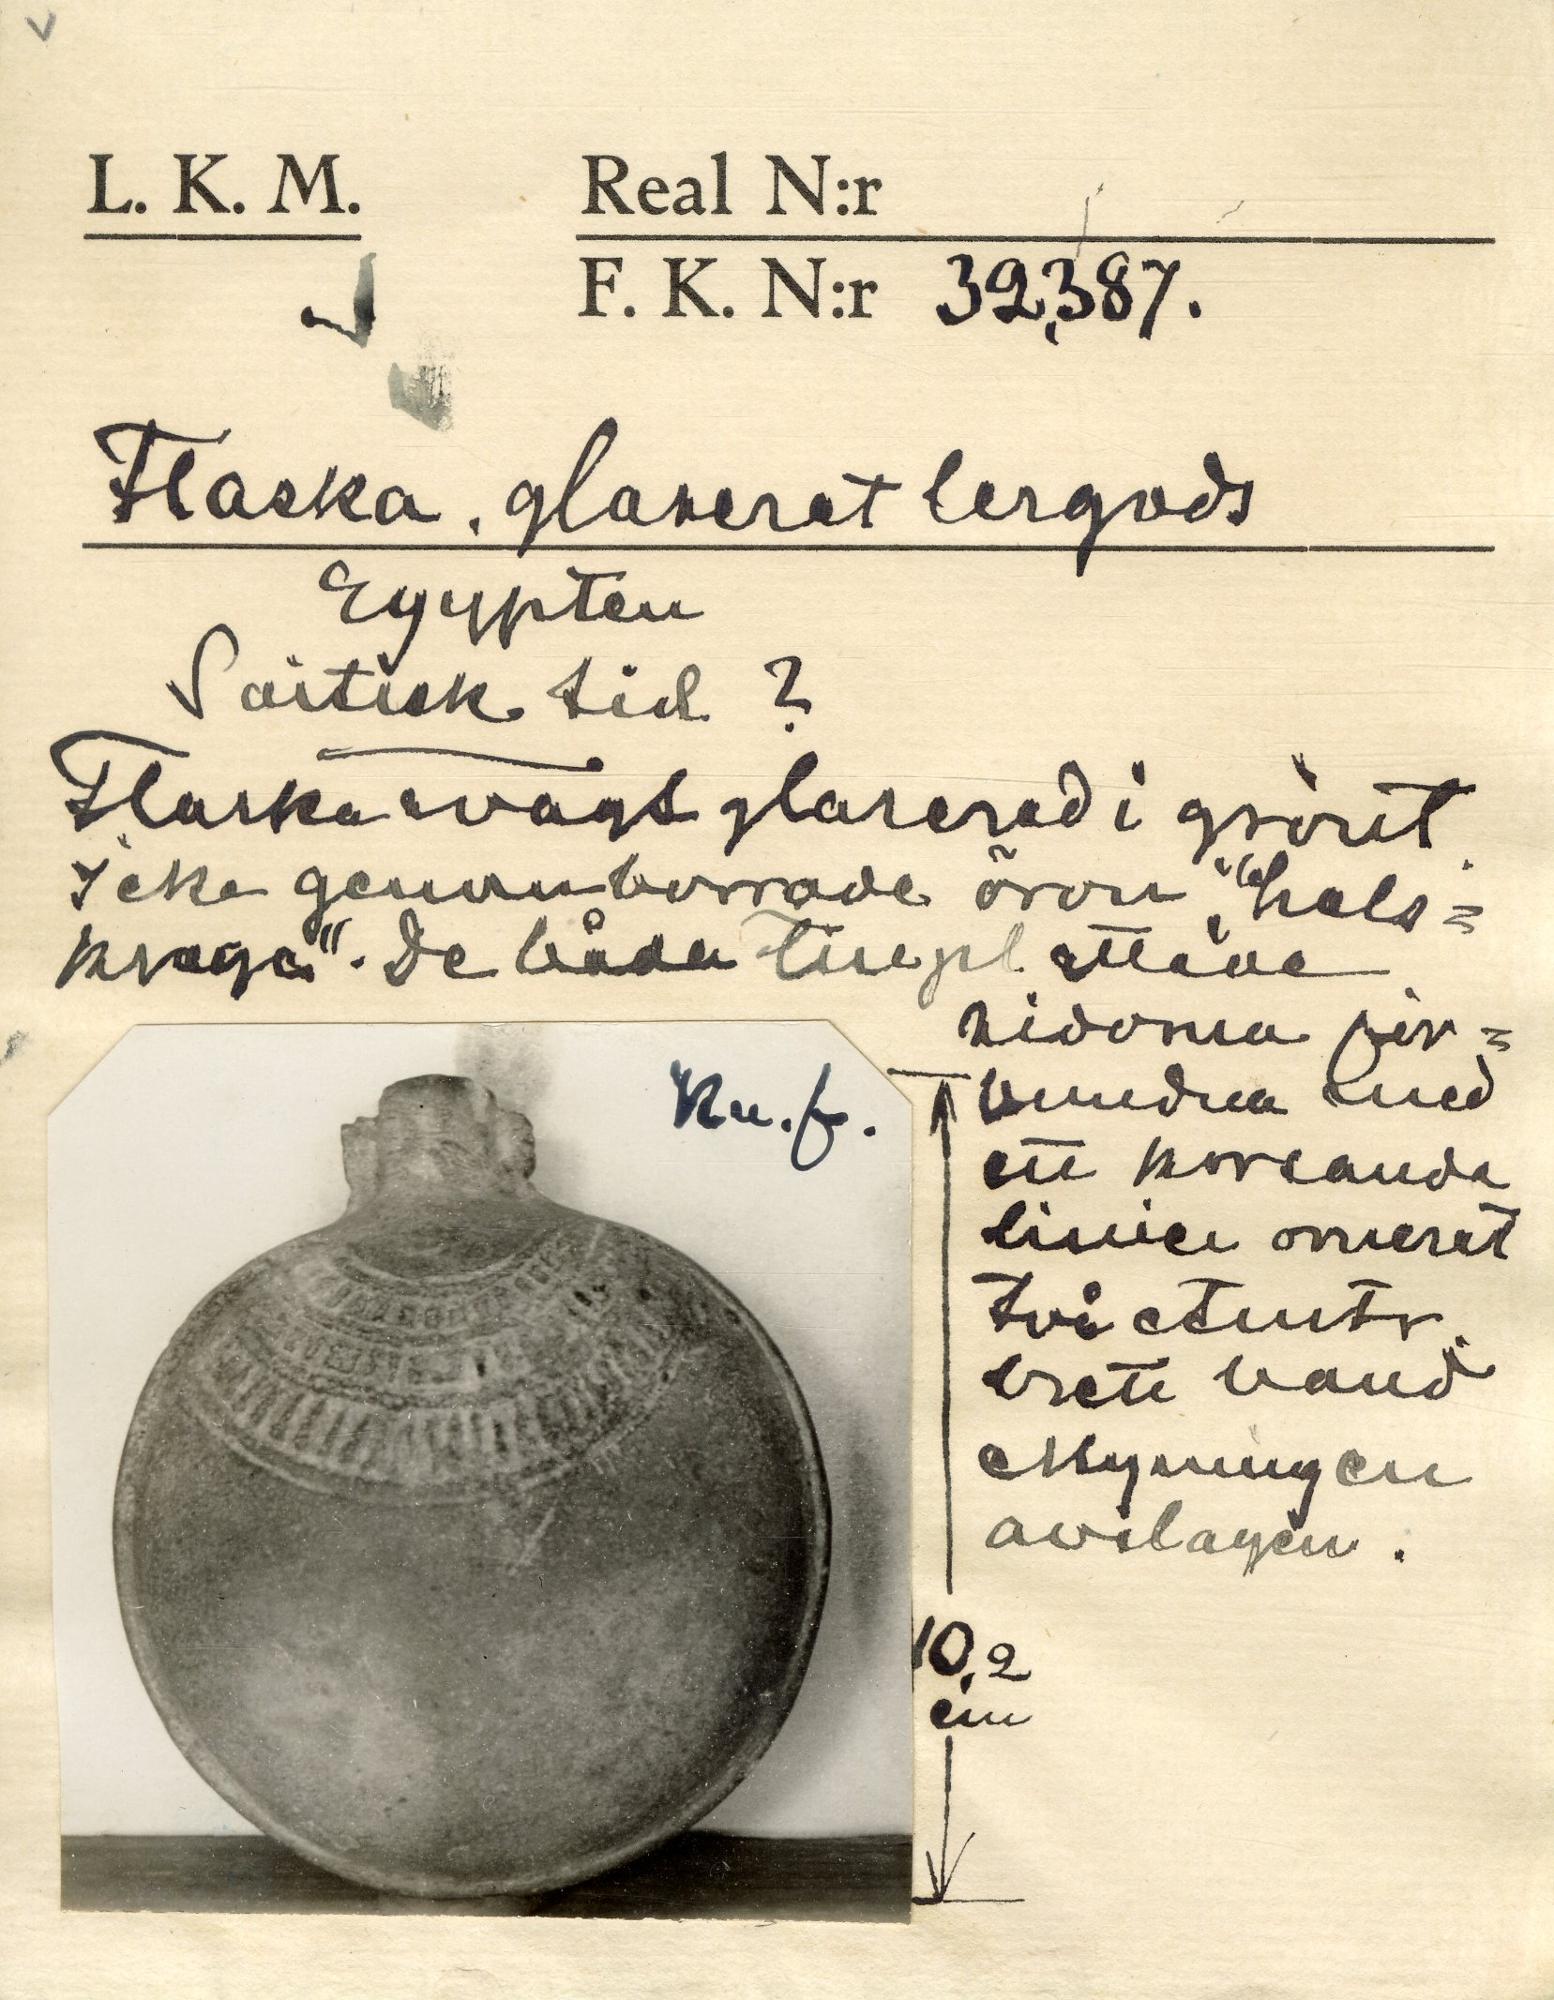 L. K. M.
Real N:r
F. K. N:r 32,387.
Flaska, glaserat lergods
Egypten
Saitisk tid ?
Flaska svagt glaserad i grönt.
Icke genomborrade öron, "hals=
krage". De båda
sidorna för=
bundna med
ett korsande
linier ornerat
två
brett band
Mynningen
avslagen.
Ku. f.
10,2
cm